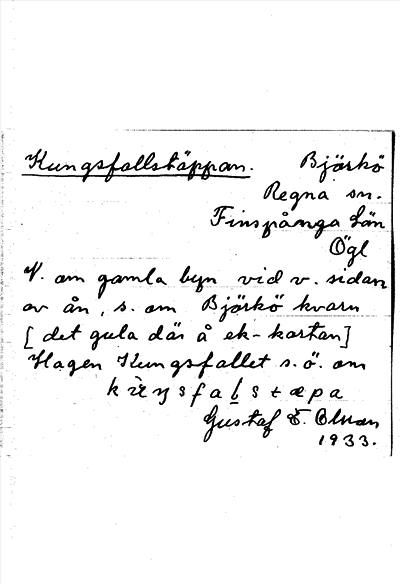 Kungsfallstäppan. Björkö
Regna sn.
Finspånga län
Ögl
V. om gamla byn vid v. sidan
av ån, s. om Björkö kvarn
[det gula där å ek-kartan]
Hagen Kungsfallet s.ö. om
Gustaf E.
1933.